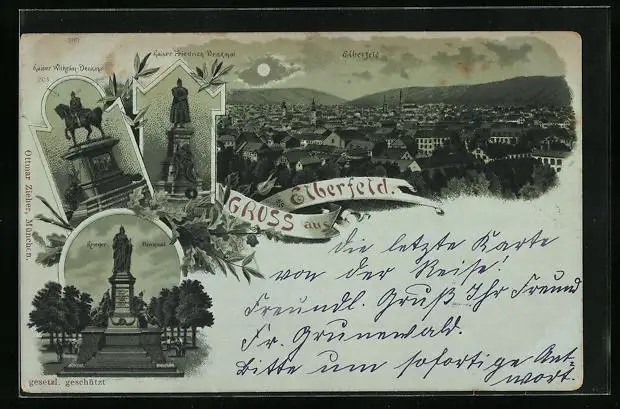 Kaiser Wilhelm-Denkmal
Kaiser Friedrich-Denkmal
Elberfeld
Krieger-Denkmal
GRUSS aus Elberfeld.
Ottmar Zieher, München.
gesetzl. geschützt
die letzte Karte
von der Reise!
Freundl. Gruß Ihr Freund
Fr. Grunewald.
Bitte um sofortige Ant-
wort.